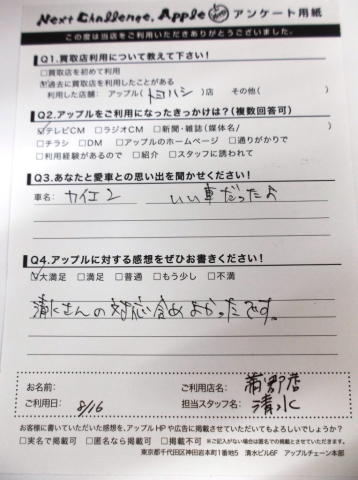 Next Challenge. Apple アンケート用紙
この度は当店をご利用いただきありがとうございました。
Q1.買取店利用について教えて下さい!
□買取店を初めて利用
☑過去に買取店を利用したことがある
利用した店舗: アップル(トヨハシ)店 その他( )
Q2.アップルをご利用になったきっかけは?(複数回答可)
☑テレビCM □ラジオCM □新聞・雑誌(媒体名/ )
□チラシ □DM □アップルのホームページ □通りがかりで
□利用経験があるので □紹介 □スタッフに誘われて
Q3.あなたと愛車との思い出を聞かせください!
車名: カイエン いい車だったよ
Q4.アップルに対する感想をぜひお書きください!
☑大満足 □満足 □普通 □もう少し □不満
清水さんの対応含めよかったです。
お名前: ご利用店名: 蒲郡店
ご利用日: 8/16 担当スタッフ名: 清水
お客様に書いていただいた感想を、アップルHPや広告に掲載させていただいてもよろしいでしょうか?
□実名で掲載可 □匿名なら掲載可 □掲載不可 ※ご記入がない場合は匿名での掲載とさせていただきます。
東京都千代田区神田岩本町1番地5 清水ビル6F アップルチェーン本部